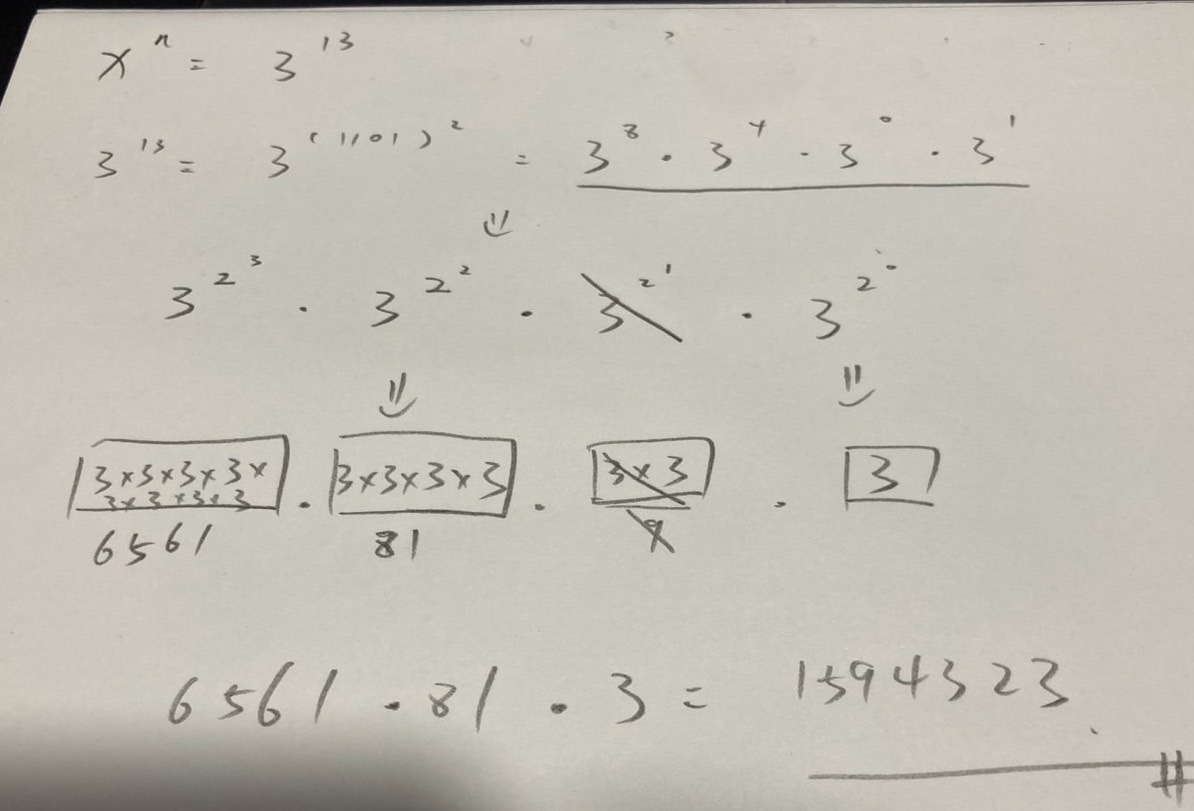 xⁿ = 3¹³
3¹³ = 3⁽¹¹⁰¹⁾² = 3⁸ · 3⁴ · 3⁰ · 3¹
3^2^3 · 3^2^2 · 3^2^1 · 3^2^0
3×3×3×3× 3×3×3×3 · 3×3×3×3 · 3×3 · 3
6561 81 9
6561 · 81 · 3 = 1594323